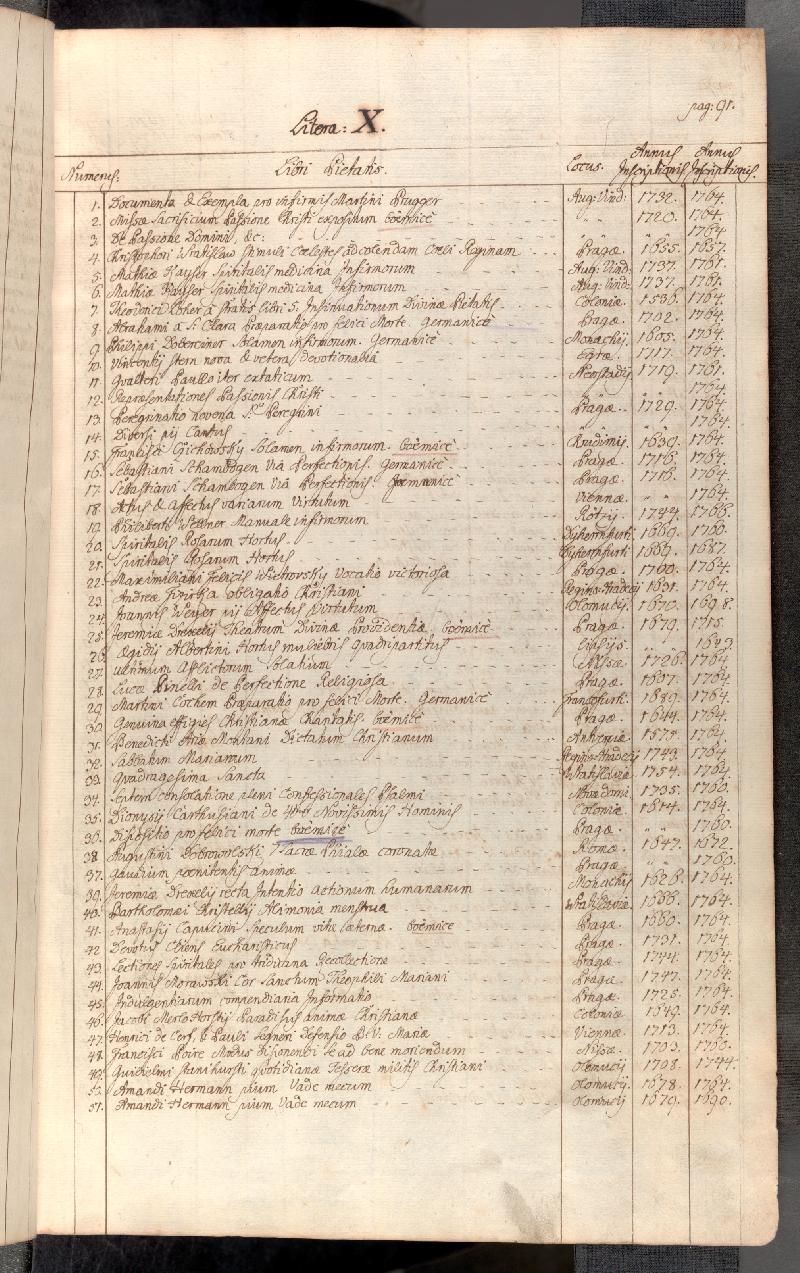 pag: 91.
Litera: X.
Numerus. Libri Pietatis. Locus. Annus Inscriptionis Annus Inscriptionis.
1. Documenta & Exempla pro infirmis Martini Prugger Aug: Vind: 1732. 1764.
2. Missæ Sacrificium Passione Christi expositum boëmicè " " 1720. 1764.
3. De Passione Domini, &c: " " " " 1764
4. Christophori Wratislaw Stimuli Cœlestes ad colendam Cœli Reginam Pragæ. 1655. 1657.
5. Mathiæ Hauser Spiritalis medicina Infirmorum Aug: Vind: 1737. 1761.
6. Mathiæ Hauser Spiritalis medicina Infirmorum Aug: Vind: 1737. 1761.
7. Theodorici Loher a Stratis libri 5. Insinuationum Divinæ Pietatis Coloniæ. 1536. 1764.
8. Abrahami a S: Clara Præparatio pro felici Morte. Germanicè Pragæ. 1702. 1764.
9. Philippi Doberciner Solamen infirmorum. Germanicè Monachij. 1605. 1764.
10. Vincentij stern nova & vetera devotionalia Egræ. 1717. 1764.
11. Gvalteri Paulli iter extaticum Neostadij 1719. 1761.
12. Repræsentationes Passionis Christi " " 1764
13. Peregrinatio novena S: Peregrini Pragæ. 1729. 1764.
14. Diversi pij Cantus 1764.
15. Francisci Crickowsky Solamen infirmorum. boëmicè Crudimij. 1630. 1764.
16. Sebastiani Schambogen Via Perfectionis. Germanicè Pragæ. 1716. 1764.
17. Sebastiani Schambogen Via Perfectionis. Germanicè Pragæ. 1716. 1764.
18. Actus & Affectus variarum Virtutum Viennæ " " 1764.
19. Philiberti Wellner Manuale infirmorum Rötzij. 1744. 1766.
20. Spiritalis Rosarum Hortus 1669. 1760.
21. Spiritalis Rosarum Hortus 1669. 1687.
22. Maximiliani Felicis Wietrowsky Vocatio victoriosa Pragæ. 1700. 1764.
23. Andreæ Swirtka obligatio Christiani Reginæ-Hradecij 1631. 1764.
24. Joannis Weyer pij Affectus Virtutum Olomucij. 1670. 1698.
25. Jeremiæ Drexelij Theatrum Divinæ Providentiæ boëmicè Pragæ. 1679. 1715.
26. Ægidij Albertini Hortus muliebris quadripartitus Lipsijs. " 1643.
27. ultimum Afflictorum Solatium Nissæ. 1726. 1764.
28. Lucæ Pinelli de Perfectione Religiosa Pragæ. 1607. 1764.
29. Martini Cochem Præparatio pro felici Morte. Germanicè Francofurti. 1689. 1764.
30. Genuina effigies Christianæ Charitatis. boëmicè Pragæ. 1644. 1764.
31. Benedicti Ariæ Montani Dictatum Christianum Antverpiæ. 1575. 1764.
32. Sabbatum Marianum Reginæ-Hradecij 1743. 1764
33. Qvadragesima Sancta Wratislaviæ. 1754. 1764.
34. Septem consolatione pleni Confessionales Psalmi Novadomi. 1735. 1760.
35. Dionysij Carthusiani de 4tuor Novissimis Hominis Coloniæ. 1614. 1764.
36. Dispositio pro felici morte boëmicè Pragæ. " " 1760.
38 Augustini Dobrowolski Sacræ Phialæ coronatæ Romæ. 1647. 1672.
37. Gaudium pœnitentis animæ Pragæ. " " 1760.
39. Jeremiæ Drexelij recta Intentio actionum humanarum Monachij 1626. 1764.
40. Bartholomæi Christellij Alimonia menstrua Wratislaviæ. 1666. 1764.
41. Anastasij Capucini Speculum vitæ æternæ. boëmicè Pragæ. 1660. 1764.
42 Devotus Cliens Eucharisticus Pragæ. 1731. 1764.
43. Lectiones Spiritales pro Triduana Recollectione Pragæ 1744. 1764.
44. Joannis Morawski Cor Sanctum Theophili Mariani Pragæ 1747. 1764.
45. Indulgentiarum compendiaria Informatio Pragæ. 1725. 1764.
46. Jacobi Merlo Horstij Paradisus animæ Christianæ Coloniæ 1649. 1764.
47. Henrici de Cerf, & Pauli Segneri Defensio B: V: Mariæ Viennæ. 1713. 1764.
48. Francisci Poire Modus disponendi se ad bene moriendum Nissæ. 1703. 1760.
49. Guilielmi Stanihursti quotidianæ Tesseræ militis Christiani Olomucij 1708. 1744.
50. Amandi Hermann pium Vade mecum Olomucij 1678. 1764.
51. Amandi Hermann pium Vade mecum Olomucij 1679. 1690.